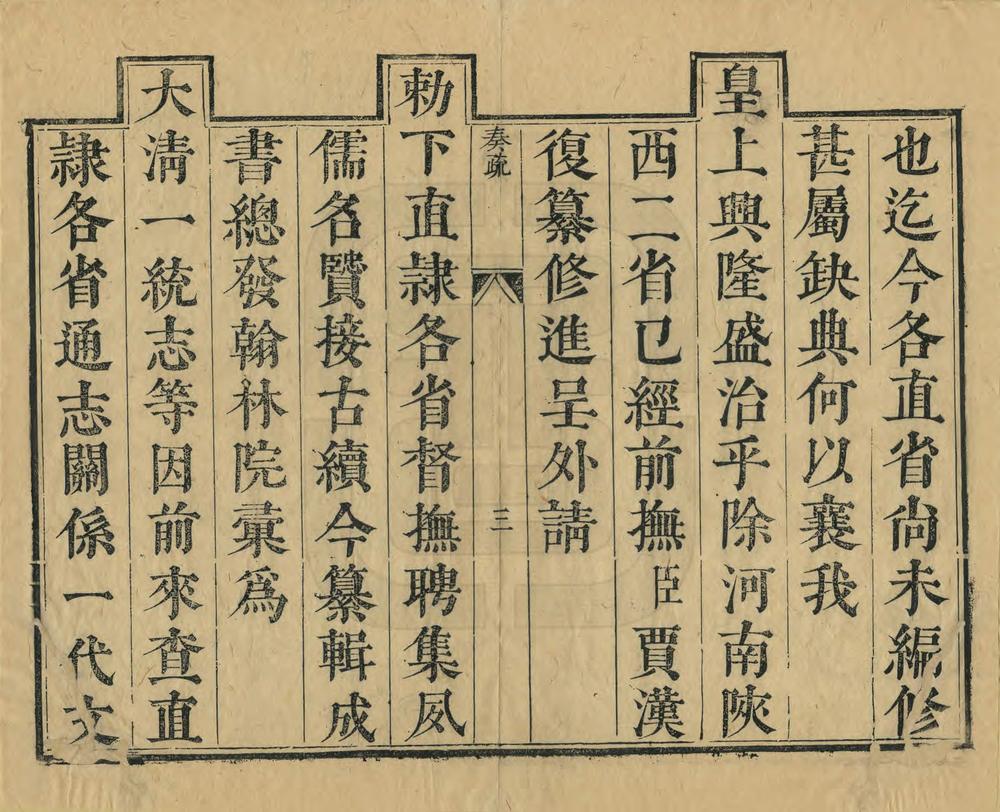 也迄今各直省尚未編修
甚屬缺典何以襄我
皇上興隆盛治乎除河南陝
西二省已經前撫臣賈漢
復纂修進呈外請
奏疏 三
勅下直隷各省督撫聘集夙
儒名賢接古續今纂輯成
書總發翰林院彙為
大清一統志等因前來查直
隷各省通志關係一代文